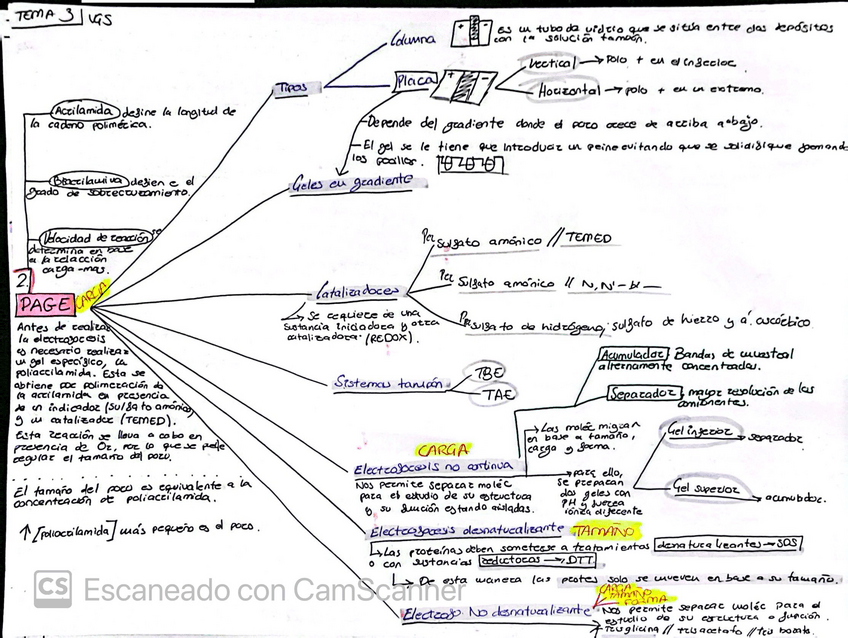 TEMA 3 / UGS
Acrilamida define la longitud de
la cadena polimérica.
Bisacrilamiva definen e el
grado de sobrecruzamiento.
Velocidad de reacción se
determina en base
a la relación
carga-mas.
2.
PAGE CARGA
Antes de realizar
la electrofocesis
es necesario realizar
un gel específico, la
poliacrilamida. Esta se
obtiene por polimerización de
la acrilamida en presencia
de un indicador (sulfato amónico)
y un catalizador (TEMED).
Esta reacción se lleva a cabo en
presencia de O2, por lo que se pede
regular el tamaño del poro.
El tamaño del poro es equivalente a la
concentración de poliacrilamida.
↑ [poliacrilamida] más pequeño es el poro.
Tipos
Columna
+ -
es un tubo de vidrio que se sitúa entre dos depósitos
con la solución tampón.
Placa
+ -
Vertical → Polo + en el inferior.
Horizontal → polo + en un extremo.
Geles en gradiente
Depende del gradiente donde el poro crece de arriba a abajo.
El gel se le tiene que introducir un peine evitando que se solidifique formando
los pocillos.
Catalizadores
Se requiere de una
sustancia iniciadora y otra
catalizadora (REDOX).
Per sulfato amónico // TEMED
Per sulfato amónico // N, N'- bi -
Per sulfato de hidrógeno, sulfato de hierro y á. ascórbico.
Sistemas tampón
TBE
TAE
CARGA
Electrofocesis no continua
Nos permite separar moléc
para el estudio de su estructura
y su función estando aisladas.
Acumulador Bandas de muestral
altamente concentradas.
Separador, mayor resolución de los
componentes.
Las moléc migran
en base a tamaño,
carga y forma.
para ello,
se preparan
dos geles con
pH y fuerza
iónza diferente
Gel inferior → separador.
Gel superior → acumulador.
Electrofocesis desnaturalizante TAMAÑO
Las proteínas deben someterse a tratamientos desnaturalizantes → SDS
o con sustancias reductoras → DTT
De esta manera las protes solo se mueven en base a su tamaño.
Electrofo No desnaturalizante
CARGA
TAMAÑO
FORMA
Nos permite separar moléc para el
estudio de su estructura o función.
Tris glicina // tris acetato // tris borato.
CS Escaneado con CamScanner